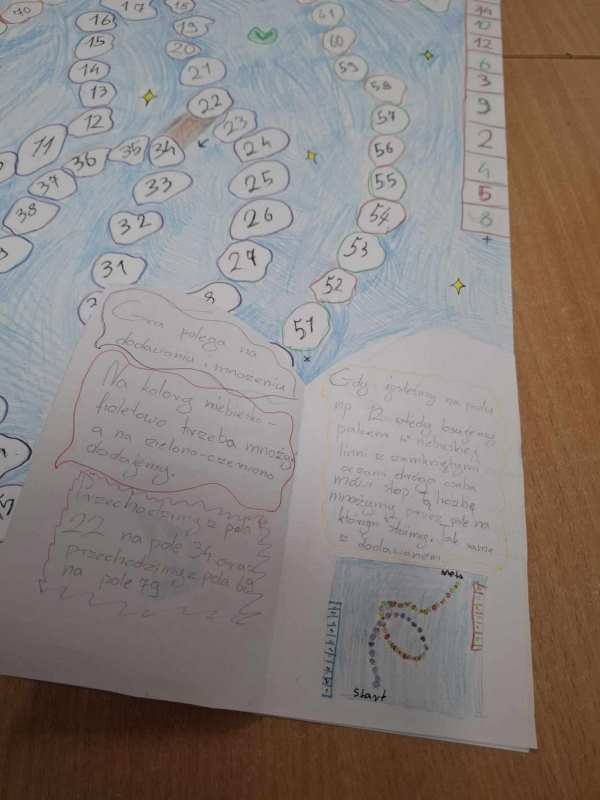 10
17
18
61
14
16
19
60
10
15
20
59
12
14
21
58
6
13
22
57
3
12
23
56
9
11
36
35
34
24
55
2
37
33
25
54
4
38
32
26
53
5
31
27
52
8
8
51
+
×
Gra polega na
dodawaniu i mnożeniu
Na kolorg niebiesko -
fioletowo trzeba mnożyć
a na zielono-czerwono
dodajemy.
Przechodzimy z pola
22 na pole 34 oraz
przechodzimy z pola 69
na pole 79
Gdy jesteśmy na polu
np 12 wtedy
palcem w niebieskiej
linii z zamkniętymi
oczami druga osoba
mówi stop tą liczbę
mnożymy przez pole na
którym stoimy, tak samo
z dodawaniem
Meta
Start